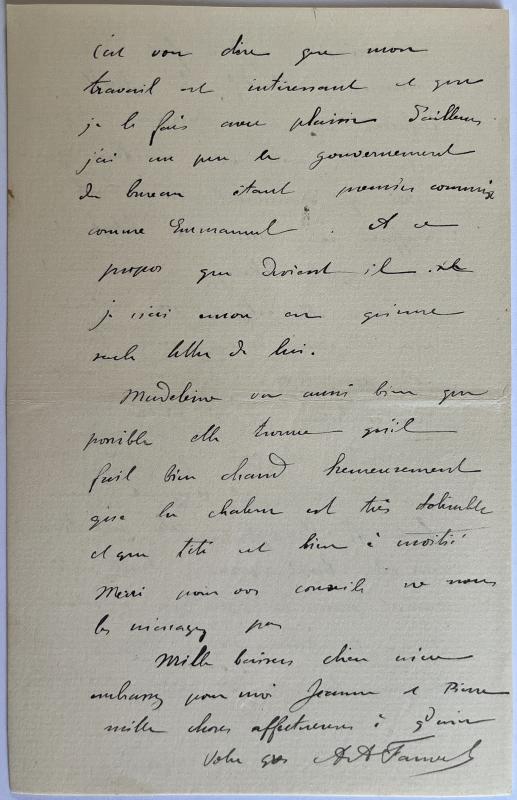 C'est vous dire que mon
travail est intéressant et que
je le fais avec plaisir d'ailleurs
j'ai un peu le gouvernement
du bureau étant premier commis
comme Emmanuel. A ce
propos que devient il
je n'ai encore eu qu'une
seule lettre de lui.
Madeleine va aussi bien que
possible elle trouve qu'il
fait bien chaud heureusement
que la chaleur est très tolérable
et que l'été est bien à moitié
Merci pour vos conseils ne nous
les ménagez pas
Mille baisers chère mère
embrassez pour moi Jeanne et Pierre
mille choses affectueuses à
Votre